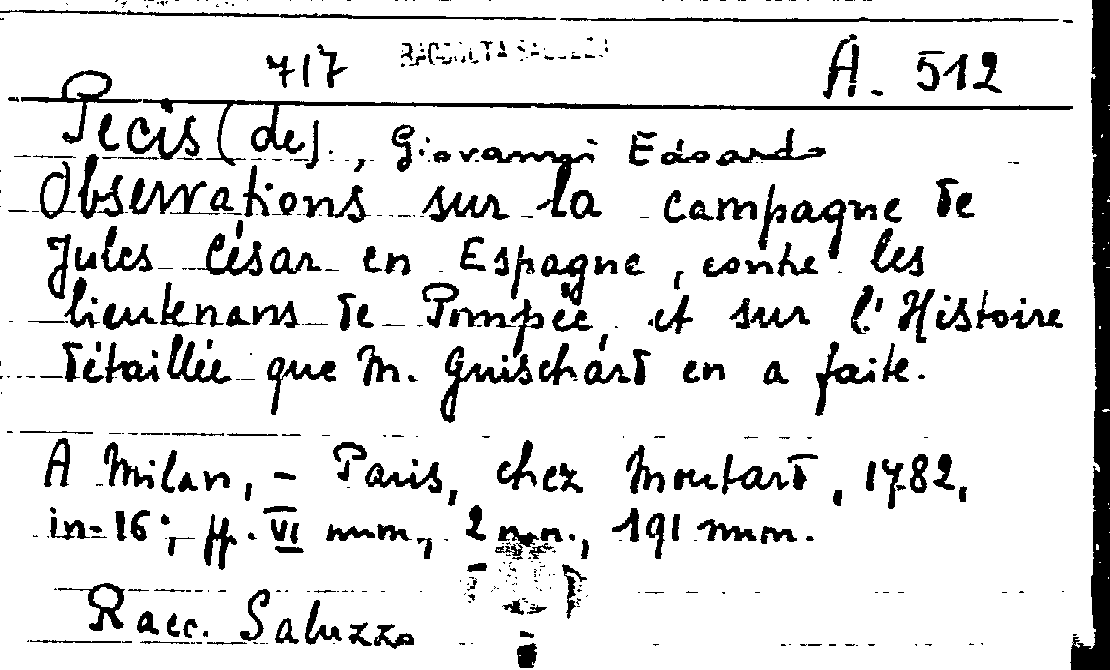 717 RACCOLTA SALUZZO A. 512
Pecis (de)., Giovanni Edoardo
Observations sur la campagne de
Jules César en Espagne, contre les
lieutenans de Pompée, et sur l'Histoire
détaillée que M. Guischard en a faite.
A Milan, - Paris, chez Moutard, 1782,
in-16°, pp. VI num., 2 n.n., 191 num.
Racc. Saluzzo